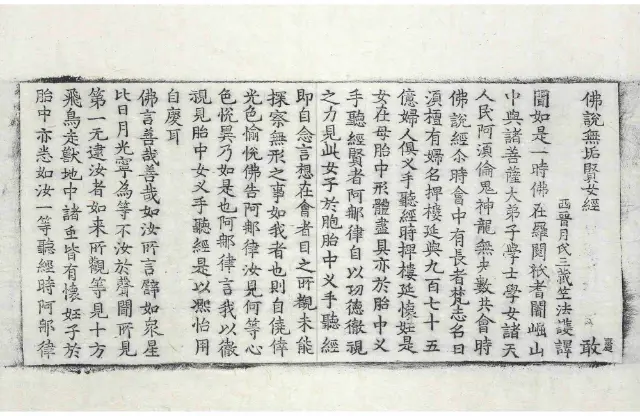 佛說無垢賢女經 敢
西晉月氏三藏竺法護譯
聞如是一時佛在羅閱祇耆闍崛山
中與諸菩薩大弟子學士學女諸天
人民阿湏倫鬼神龍無央數共會時
佛說經尒時會中有長者梵志名曰
湏檀有婦名押樓延與九百七十五
億婦人俱叉手聽經時押樓延懷妊是
女在母胎中形體盡具亦於胎中叉
手聽經賢者阿那律自以功德徹視
之力見此女子於胞胎中叉手聽經
即自念言想在會者目之所觀未能
探察無形之事如我者也則自僥倖
光色愉悅佛告阿那律汝見何等心
色悅異乃如是也阿那律言我以徹
視見胎中女叉手聽經是以熙怡用
自慶耳
佛言善哉善哉如汝所言譬如衆星
比日月光寧為等不汝於聲聞所見
第一无逮汝者如来所觀等見十方
飛鳥走獸地中諸虫皆有懷妊子於
胎中亦悉如汝一等聽經時阿那律